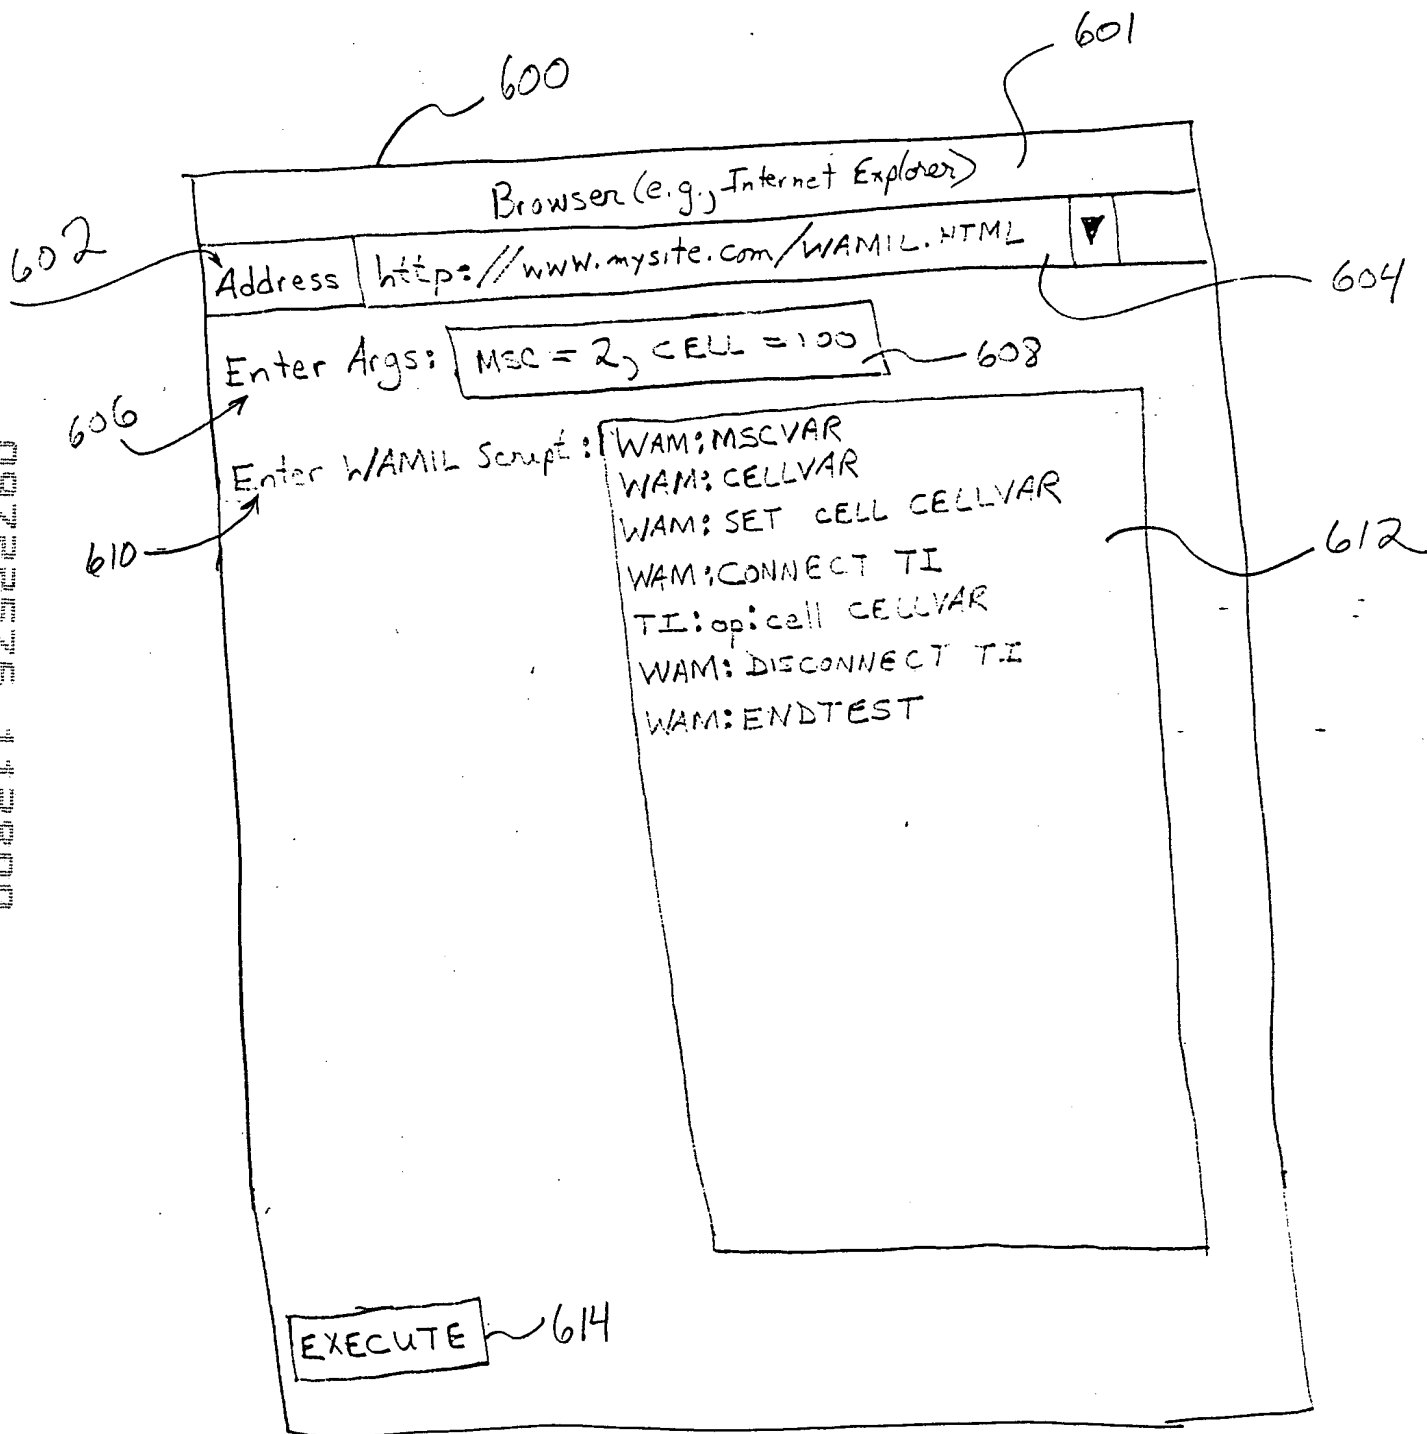 600
601
Browser (e.g., Internet Explorer)
602
Address http://www.mysite.com/WAMIL.HTML
604
Enter Args: MSC = 2, CELL = 100
608
606
Enter WAMIL Script: WAM:MSCVAR
WAM:CELLVAR
WAM: SET CELL CELLVAR
612
610
WAM:CONNECT TI
TI:op:cell CELLVAR
WAM: DISCONNECT TI
WAM:ENDTEST
EXECUTE
614